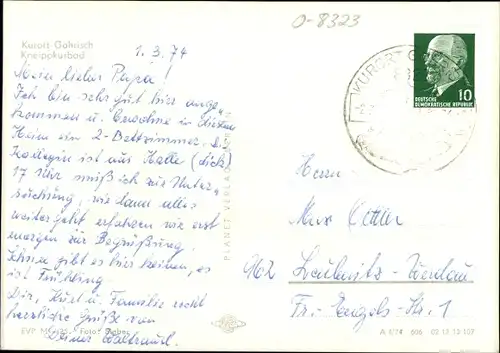 O-8323
Kurort Gohrisch
Kneippkurbad
1. 3. 74
Mein lieber Papa!
Ich bin sehr gut hier ange-
kommen u. bewohne in diesem
Heim ein 2-Bettzimmer. Die
Kollegin ist aus Halle (dick)
17 Uhr muß ich zur Unter-
suchung, wie dann alles
weitergeht erfahren wir erst
morgen zur Begrüßung.
Schnee gibt es hier keinen, es
ist Frühling
Dir, Kurt u. Familie recht
herzliche Grüße von
Deiner Waltraud.
PLANET VERLAG
KURORT G
DEUTSCHE
DEMOKRATISCHE REPUBLIK
10
Herrn
Max
962
Fr.-Engels-Str. 1
EVP M Foto:
A 1/74